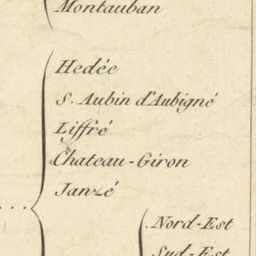 Montauban
Hedée
S. Aubin d'Aubigné
Liffré
Chateau-Giron
Janzé
Nord-Est
Sud-Est